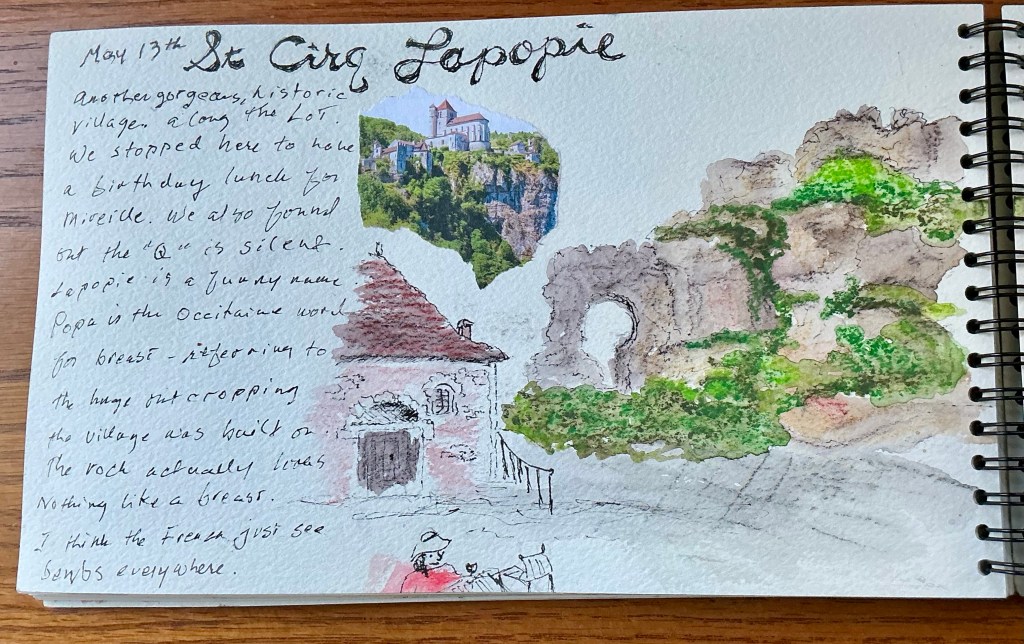 May 13th St Cirq Lapopie
another gorgeous, historic
village along the Lot.
We stopped here to have
a birthday lunch for
Mireille. We also found
out the "Q" is silent.
Lapopie is a funny name
Popa is the Occitaine word
for breast - referring to
the huge outcropping
the village was built on
The rock actually looks
Nothing like a breast.
I think the French just see
everywhere.